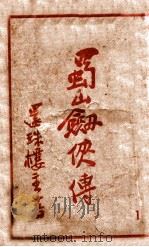 蜀山劍俠傳
還珠樓主著
1